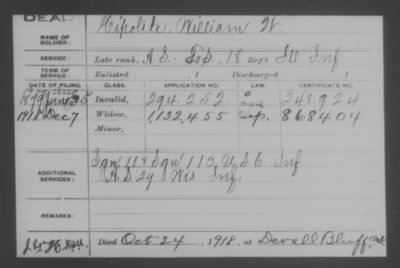 DEAD
NAME OF SOLDIER: Hipolite, William W.
SERVICE: Late rank, A S. 18 Regt Ill Inf
TERM OF SERVICE: Enlisted , 1 Discharged , 1
DATE OF FILING. CLASS. APPLICATION NO. LAW. CERTIFICATE NO.
1879 June 25 Invalid, 294.252. 248.924
1918 Dec 7 Widow, 1132,455 Sep. 868404
Minor,
ADDITIONAL SERVICES: Sgn 11 & Sgn 113, U S C Inf
A S 29 Wis Inf.
REMARKS:
Died Oct 24, 1918, at Devall Bluff,